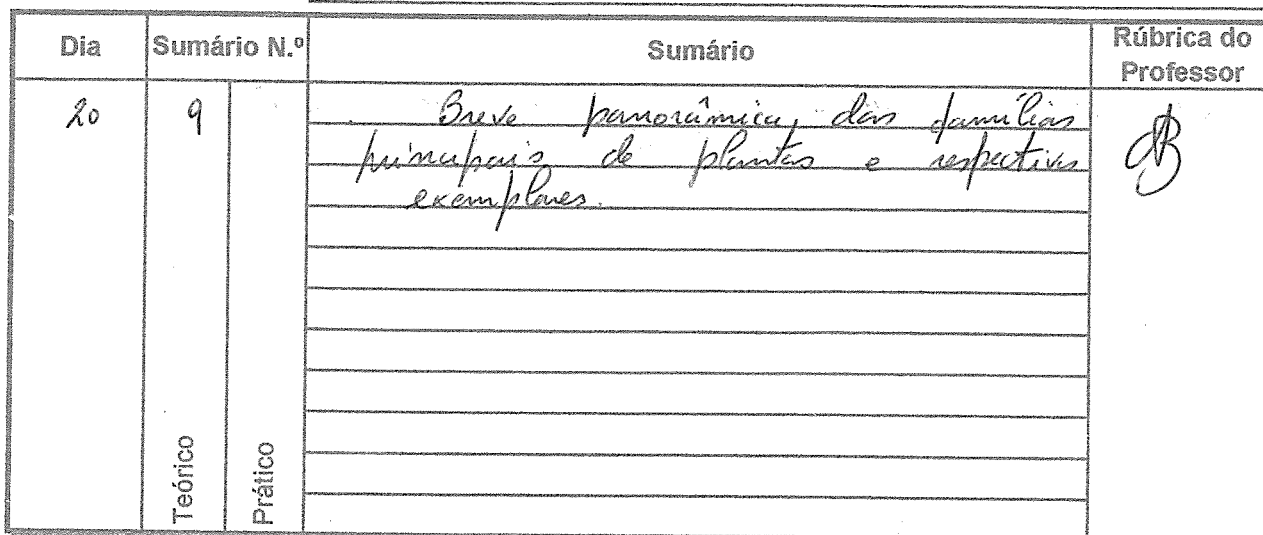 Dia Sumário N.º Sumário Rúbrica do Professor
20 9 Breve panorâmica, das famílias
principais de plantas e respectivos
exemplares.
Teórico Prático